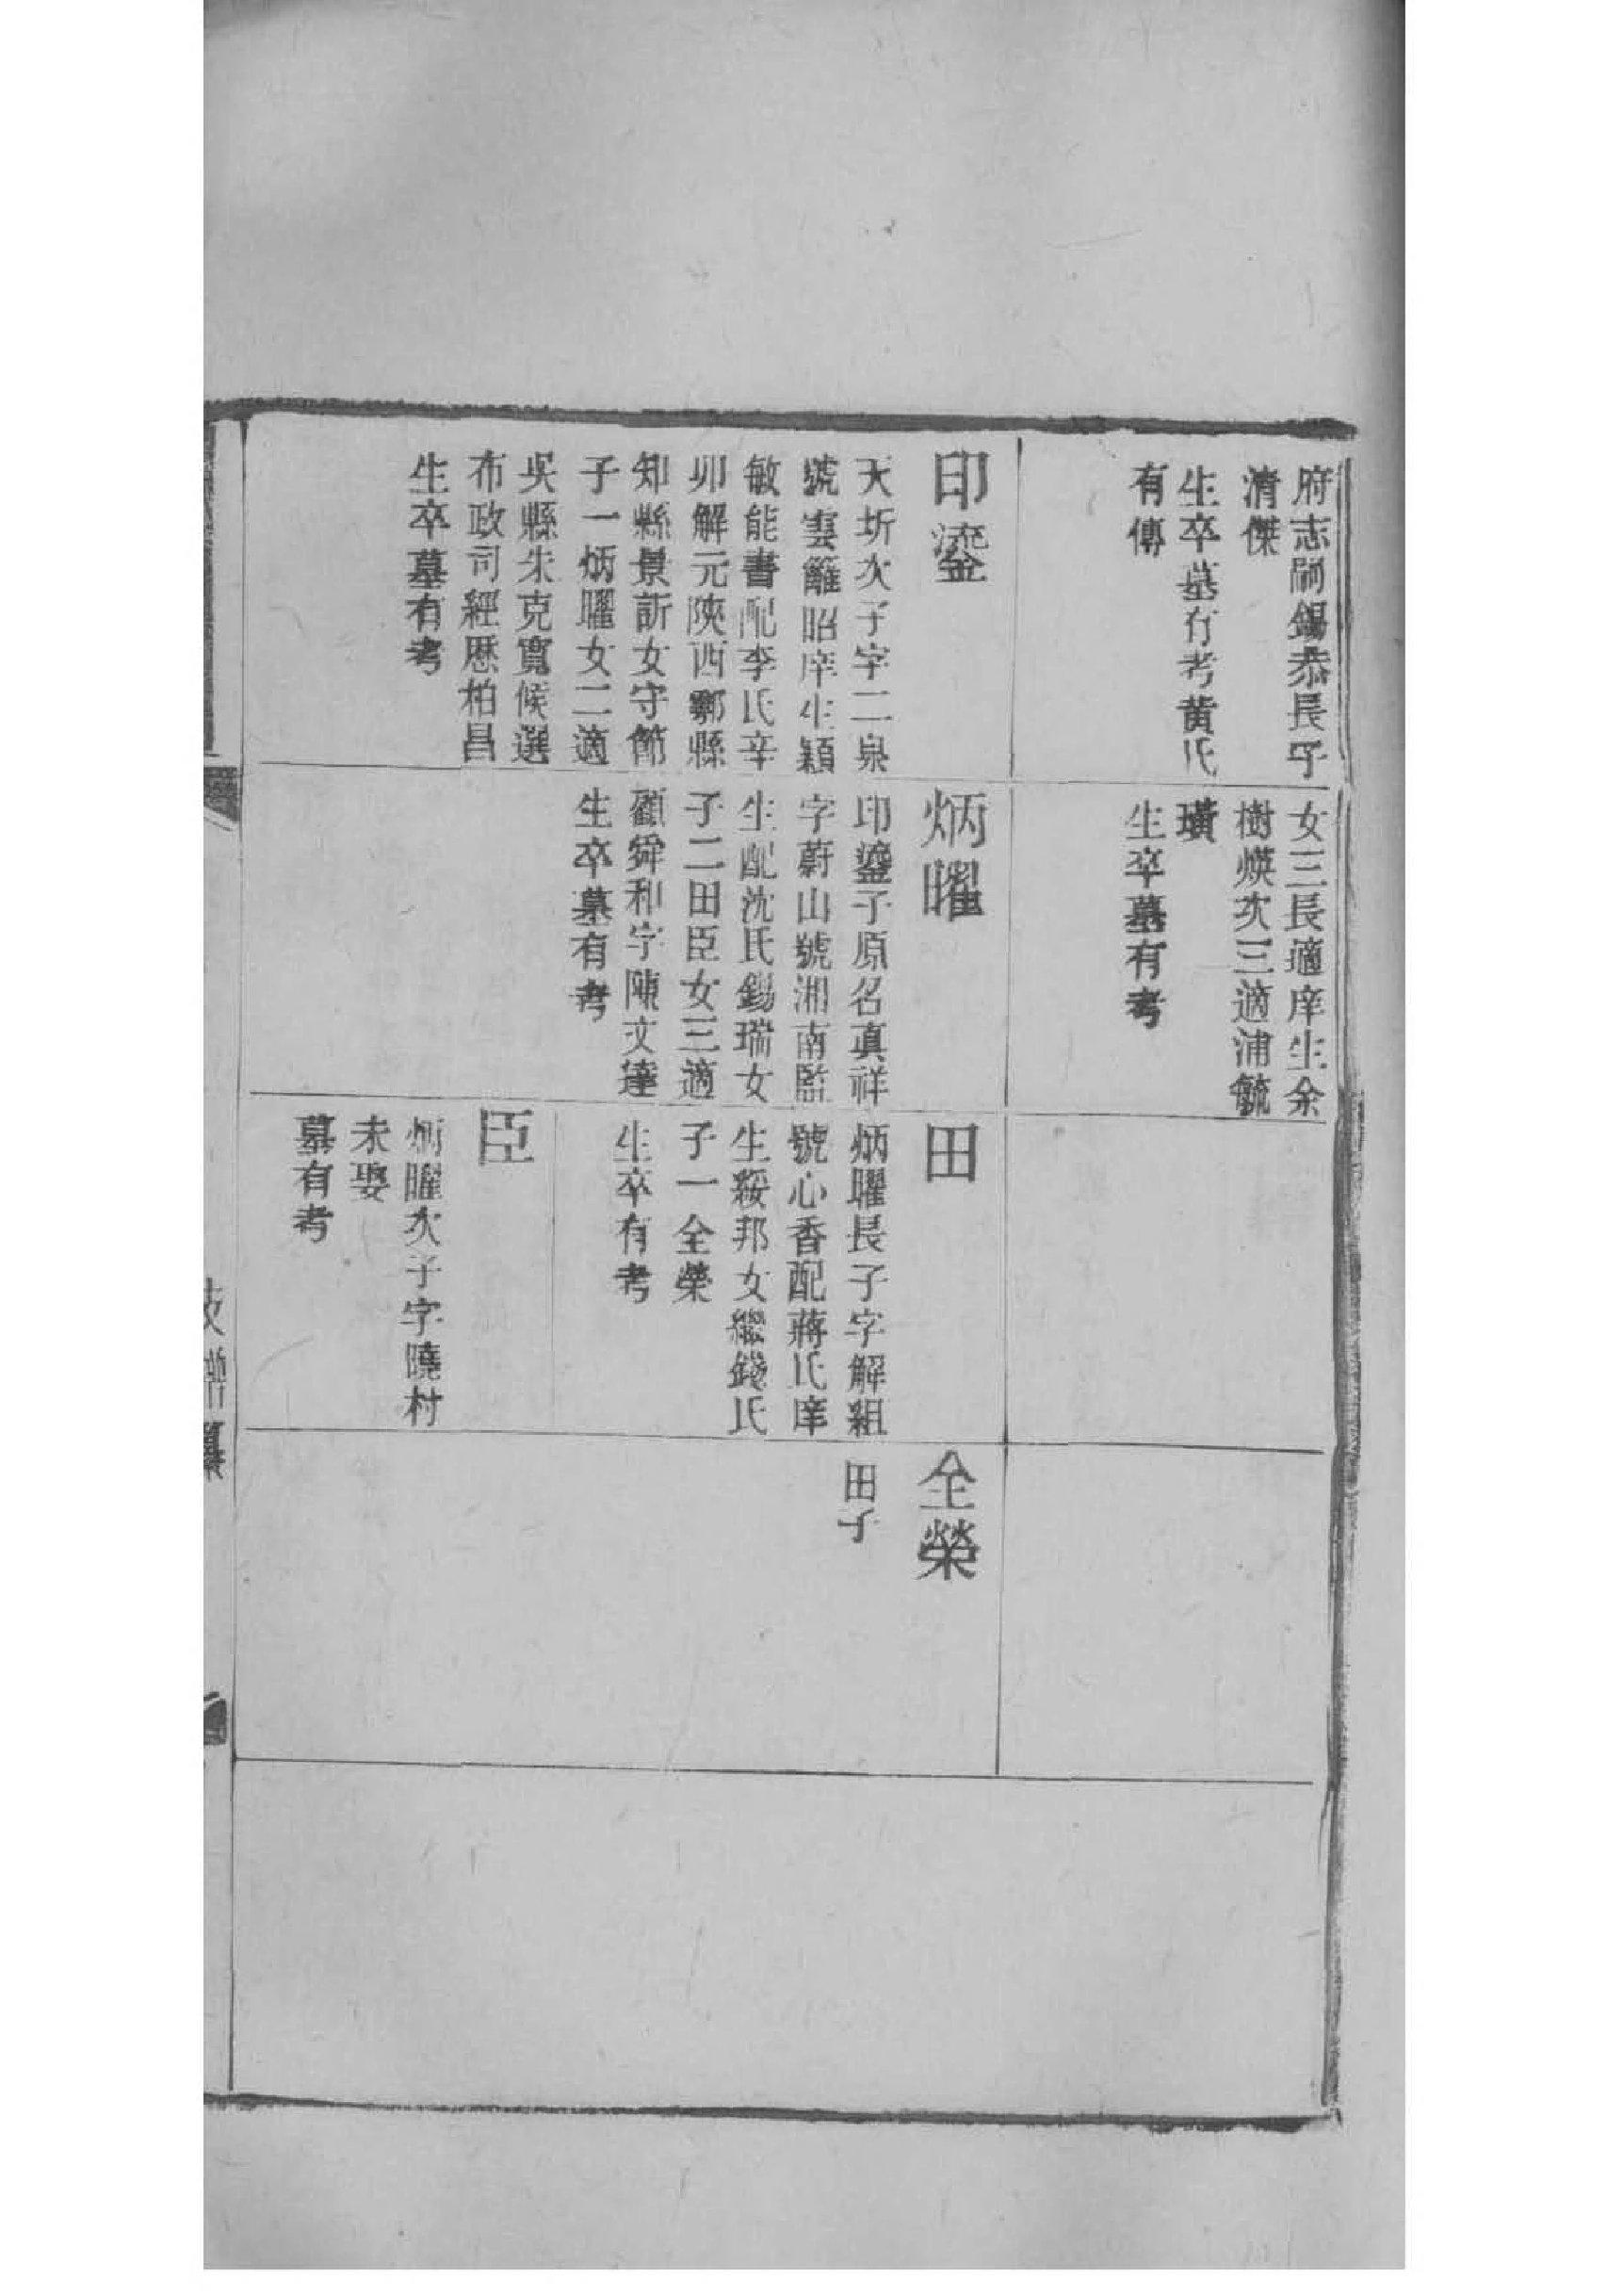 府志嗣錫恭長子
清傑
生卒墓有考黃氏
有傳
女三長適庠生余
樹煐次三適浦毓
璜
生卒墓有考
印鎏
天圻次子字二泉
號雲籬昭庠生穎
敏能書配李氏辛
卯解元陝西鄠縣
知縣景訢女守節
子一炳曜女二適
吳縣朱克寬候選
布政司經歷柏昌
生卒墓有考
炳曜
印鎏子原名眞祥
字蔚山號湘南監
生配沈氏錫瑞女
子二田臣女三適
顧舜和宇陳文達
生卒墓有考
田
炳曜長子字解組
號心香配蔣氏庠
生綏邦女繼錢氏
子一全榮
生卒有考
臣
炳曜次子字曉村
未娶
墓有考
全榮
田子